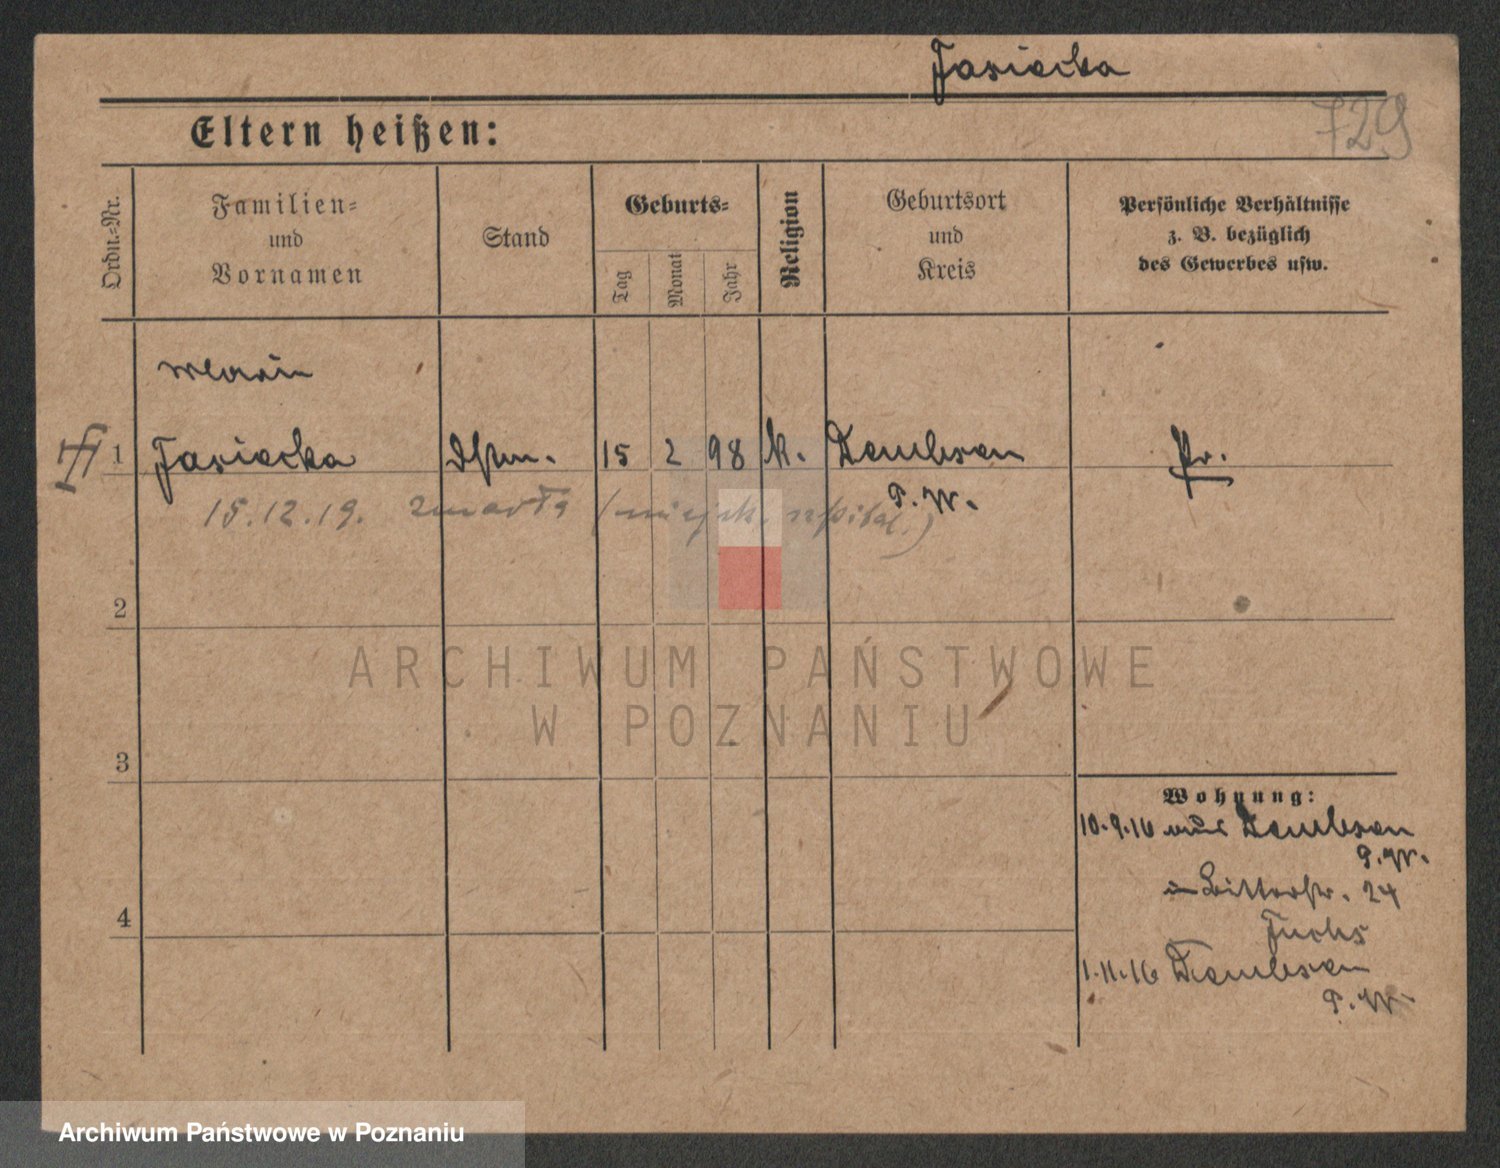 Jasiecka
729
Eltern heißen:
Ordn.-Nr.
Familien-
und
Vornamen
Stand
Geburts-
Tag
Monat
Jahr
Religion
Geburtsort
und
Kreis
Persönliche Verhältnisse
z. B. bezüglich
des Gewerbes usw.
1 Jasiecka Dstm. 15 2 98 k. Dembsen Pr.
P. W.
15.12.19. zmarła (miejsk. szpital.)
2
ARCHIWUM PAŃSTWOWE
W POZNANIU
3
Wohnung:
10.9.16 aus Dembsen
P. W.
Ritterstr. 24
Fuchs
4
1.11.16 Dembsen
P. W.
Archiwum Państwowe w Poznaniu